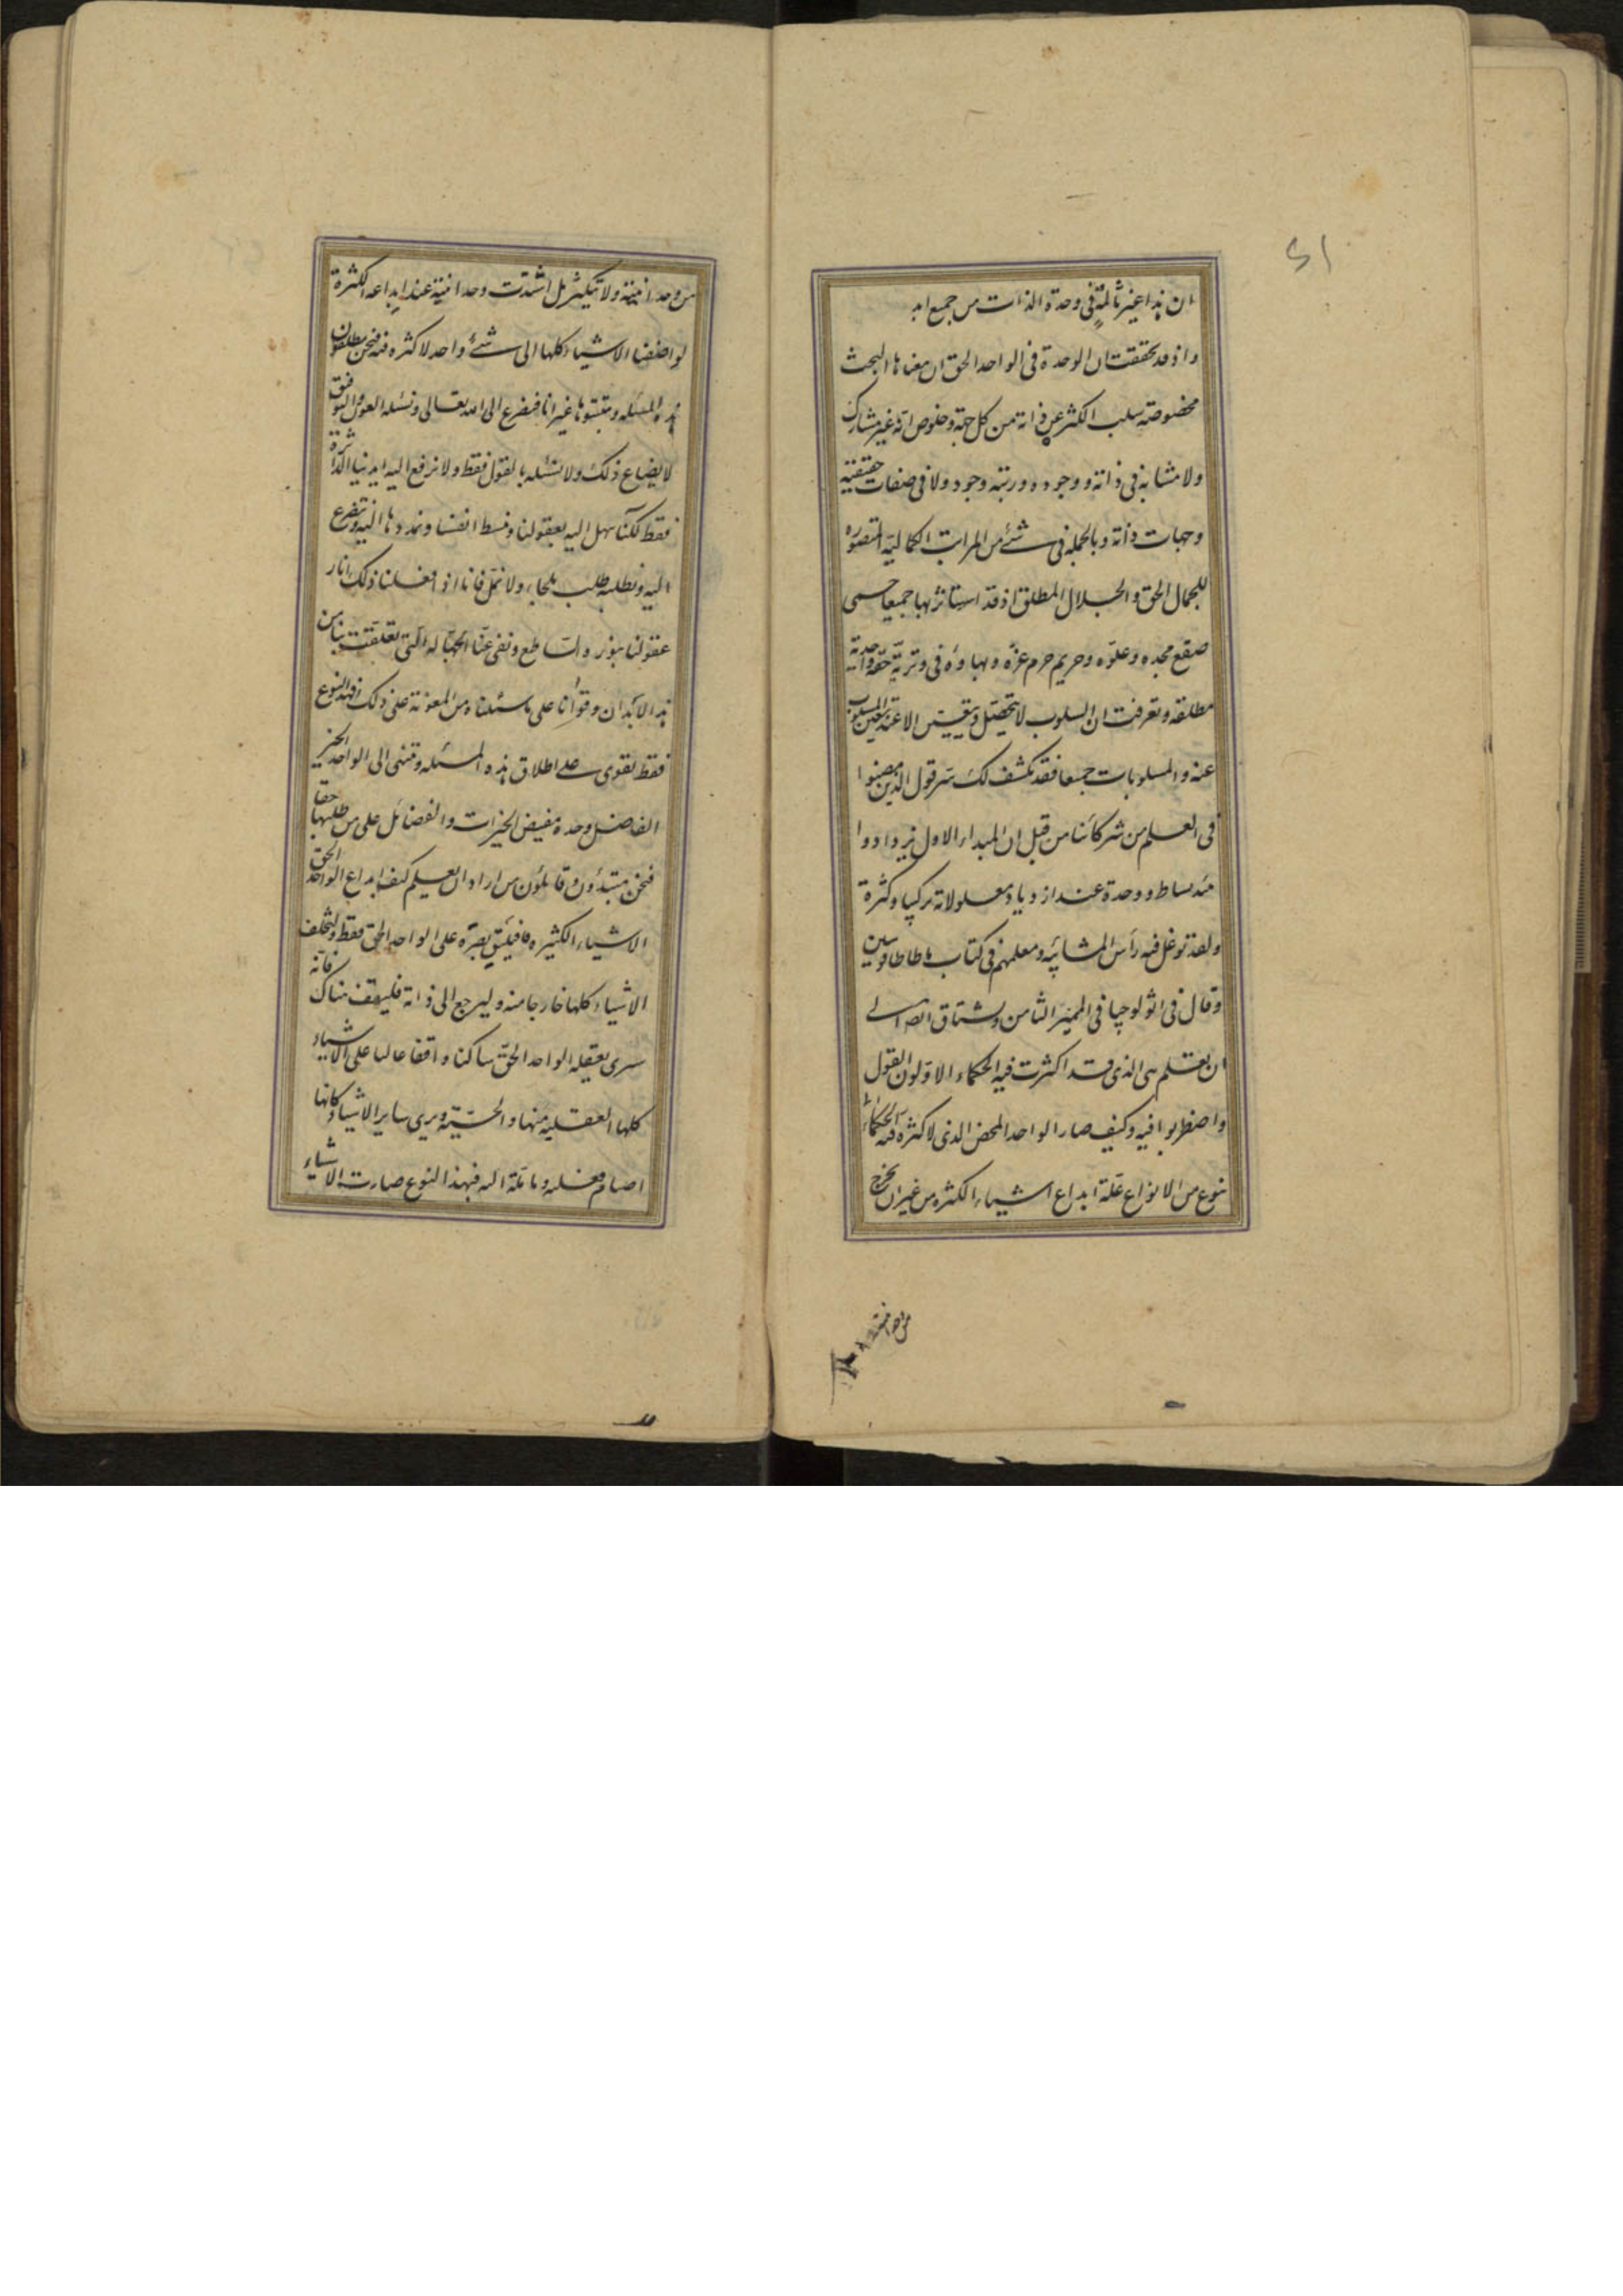 51
ان هذا غير ثالمة في وحدة الذات من جميع
واذ قد تحققت ان الوحدة في الواحد الحق ان معناها البحث
مخصوصة سلب الكثر عن ذاته من كل جهة وخلوص انه غير مشارك
ولا مشابه في ذاته ووجوده ورتبة وجود ولا في صفات حقيقية
وجهات ذاته وبالجملة في شئ من المراتب الكمالية المتصورة
للجمال الحق والجلال المطلق اذ قد استاثر بها جميعا حمى
صقع مجده وعلوه وحريم حرم عزه وبهاؤه في وترية حقة واحدية
مطلقة وتعرفت ان السلوب لا يتحصل ويتعين الا عند تعين المسلوب
عنه والمسلوبات جميعا فقد تكشف لك سر قول الذين مضوا
في العلم من شركائنا من قبل ان المبداء الاول يزدادوا
منه بساط ووحدة عند ازدياد معلولاته تركبا وكثرة
ولقد توغل فيه رأس المشائيه ومعلمهم في كتاب ماطاطاوسين
وقال في اثولوجيا في الميمر الثامن ويشتاق ايضا الى
ان يعلم هى الذى قد اكثرت فيه الحكماء الاولون القول
واضطربوا فيه وكيف صار الواحد المحض الذى لا كثره فيه
بنوع من الانواع علة ابداع اشياء الكثره من غير ان يخرج
من وحدانيته
من وحدانيته ولا يتكثر بل اشتدت وحدانيته عند ابداعه الكثرة
لو اضفنا الاشياء كلها الى شئ واحد لا كثره فيه فنحن مطلقون
هذه المسئله ومثبتوها غير انا فنضرع الى الله تعالى ونسئله العون والتوفيق
لايضاع ذلك ولا نسئله بالقول فقط ولا نرفع اليه ايدينا الداثرة
فقط لكنا نبتهل اليه بعقولنا ونبسط انفسنا ونمددها اليه ونتضرع
اليه ونطلبه طلب ملحاء ولا نمل فانا اذا فعلنا ذلك انار
عقولنا بنوره الساطع ونفى عنا الجهالة التي تعلقت بنا من
هذه الابدان وقوانا على ما سئلناه من المعونة على ذلك فبهذا النوع
فقط نقوى على اطلاق هذه المسئله وننتهى الى الواحد الخير
الفاضل وحده مفيض الخيرات والفضائل على من طلبها حقا
فنحن مبتدؤن وقائلون من اراد ان يعلم كيف ابداع الواحد الحق
الاشياء الكثيره فليلق بصره على الواحد الحق فقط وليخلف
الاشياء كلها خارجا منه وليرجع الى ذاته فليقف هناك فانه
سيرى بعقله الواحد الحق ساكنا واقفا عاليا على الاشياء
كلها العقلية منها والحسية ويرى ساير الاشياء كانها
اصنام منبثه ومائلة اليه فبهذا النوع صارت الاشياء